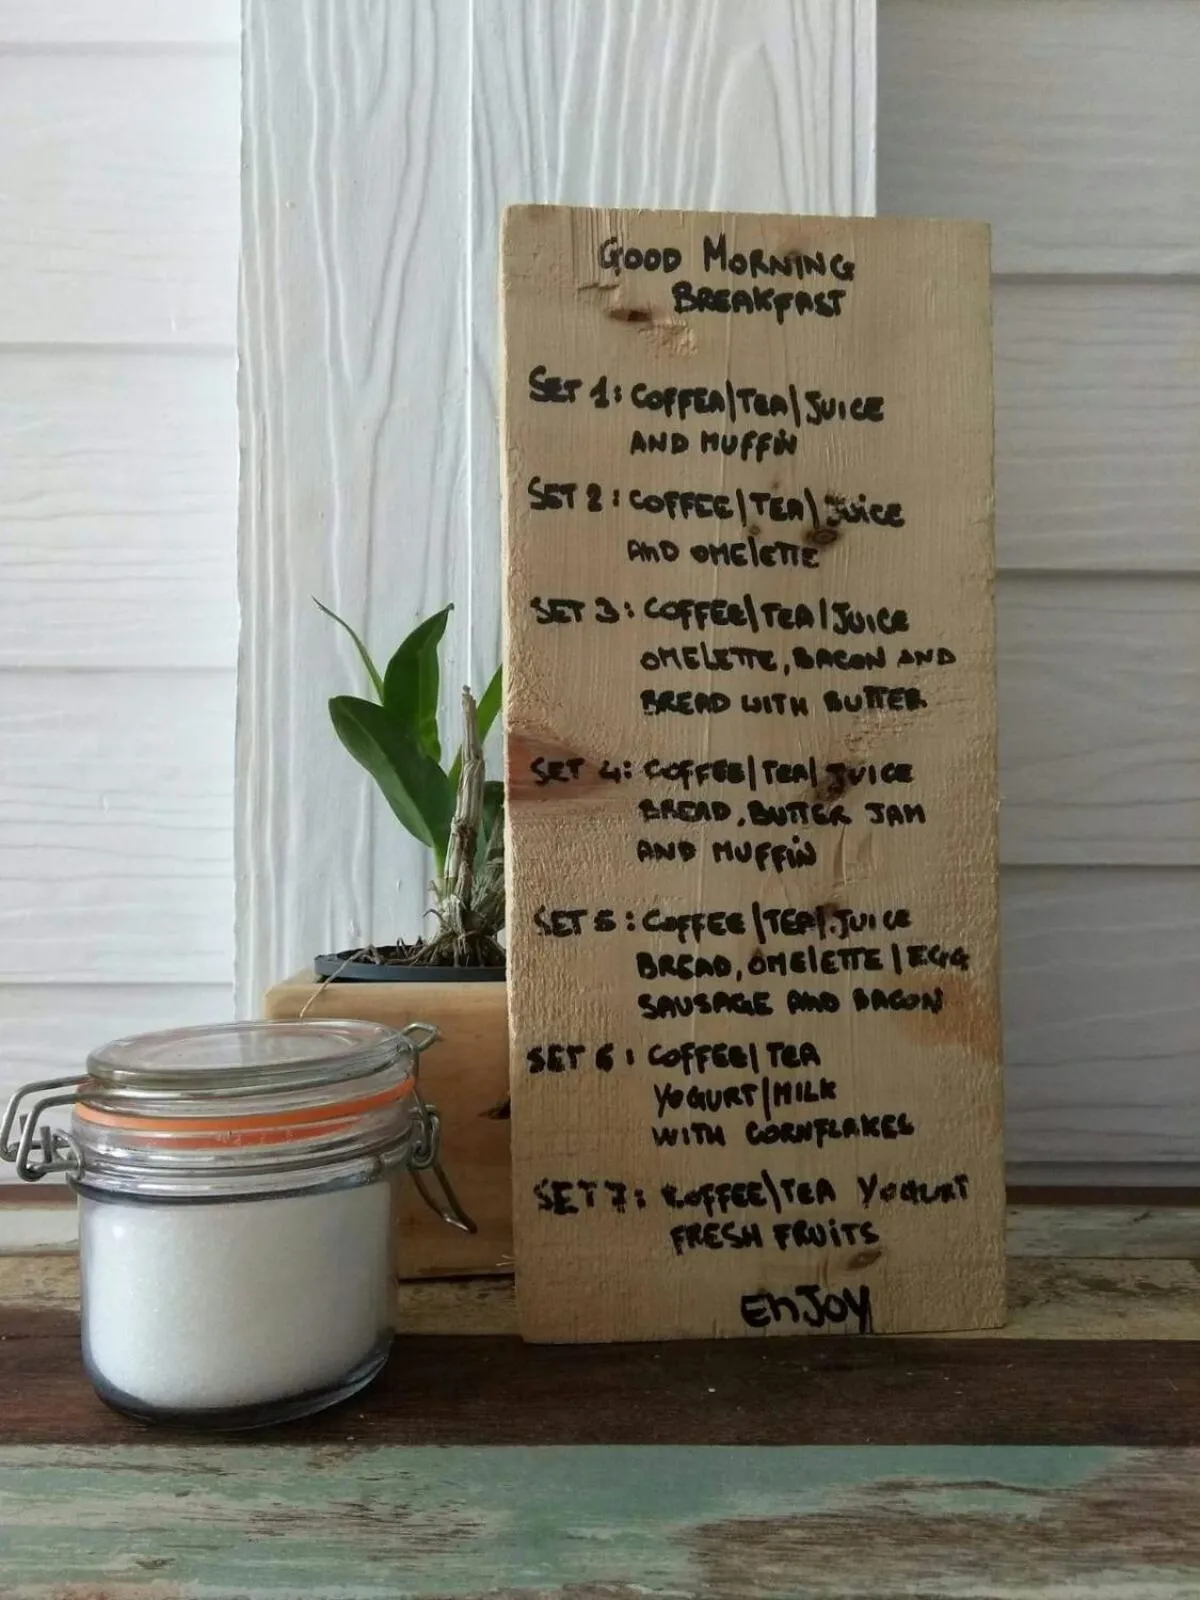 GOOD MORNING
BREAKFAST
SET 1: COFFEA/TEA/JUICE
AND MUFFIN
SET 2: COFFEE/TEA/JUICE
AND OMELETTE
SET 3: COFFEE/TEA/JUICE
OMELETTE, BACON AND
BREAD WITH BUTTER
SET 4: COFFEE/TEA/JUICE
BREAD, BUTTER JAM
AND MUFFIN
SET 5: COFFEE/TEA/JUICE
BREAD, OMELETTE/EGG
SAUSAGE AND BACON
SET 6: COFFEE/TEA
YOGURT/MILK
WITH CORNFLAKES
SET 7: COFFEE/TEA YOGURT
FRESH FRUITS
ENJOY